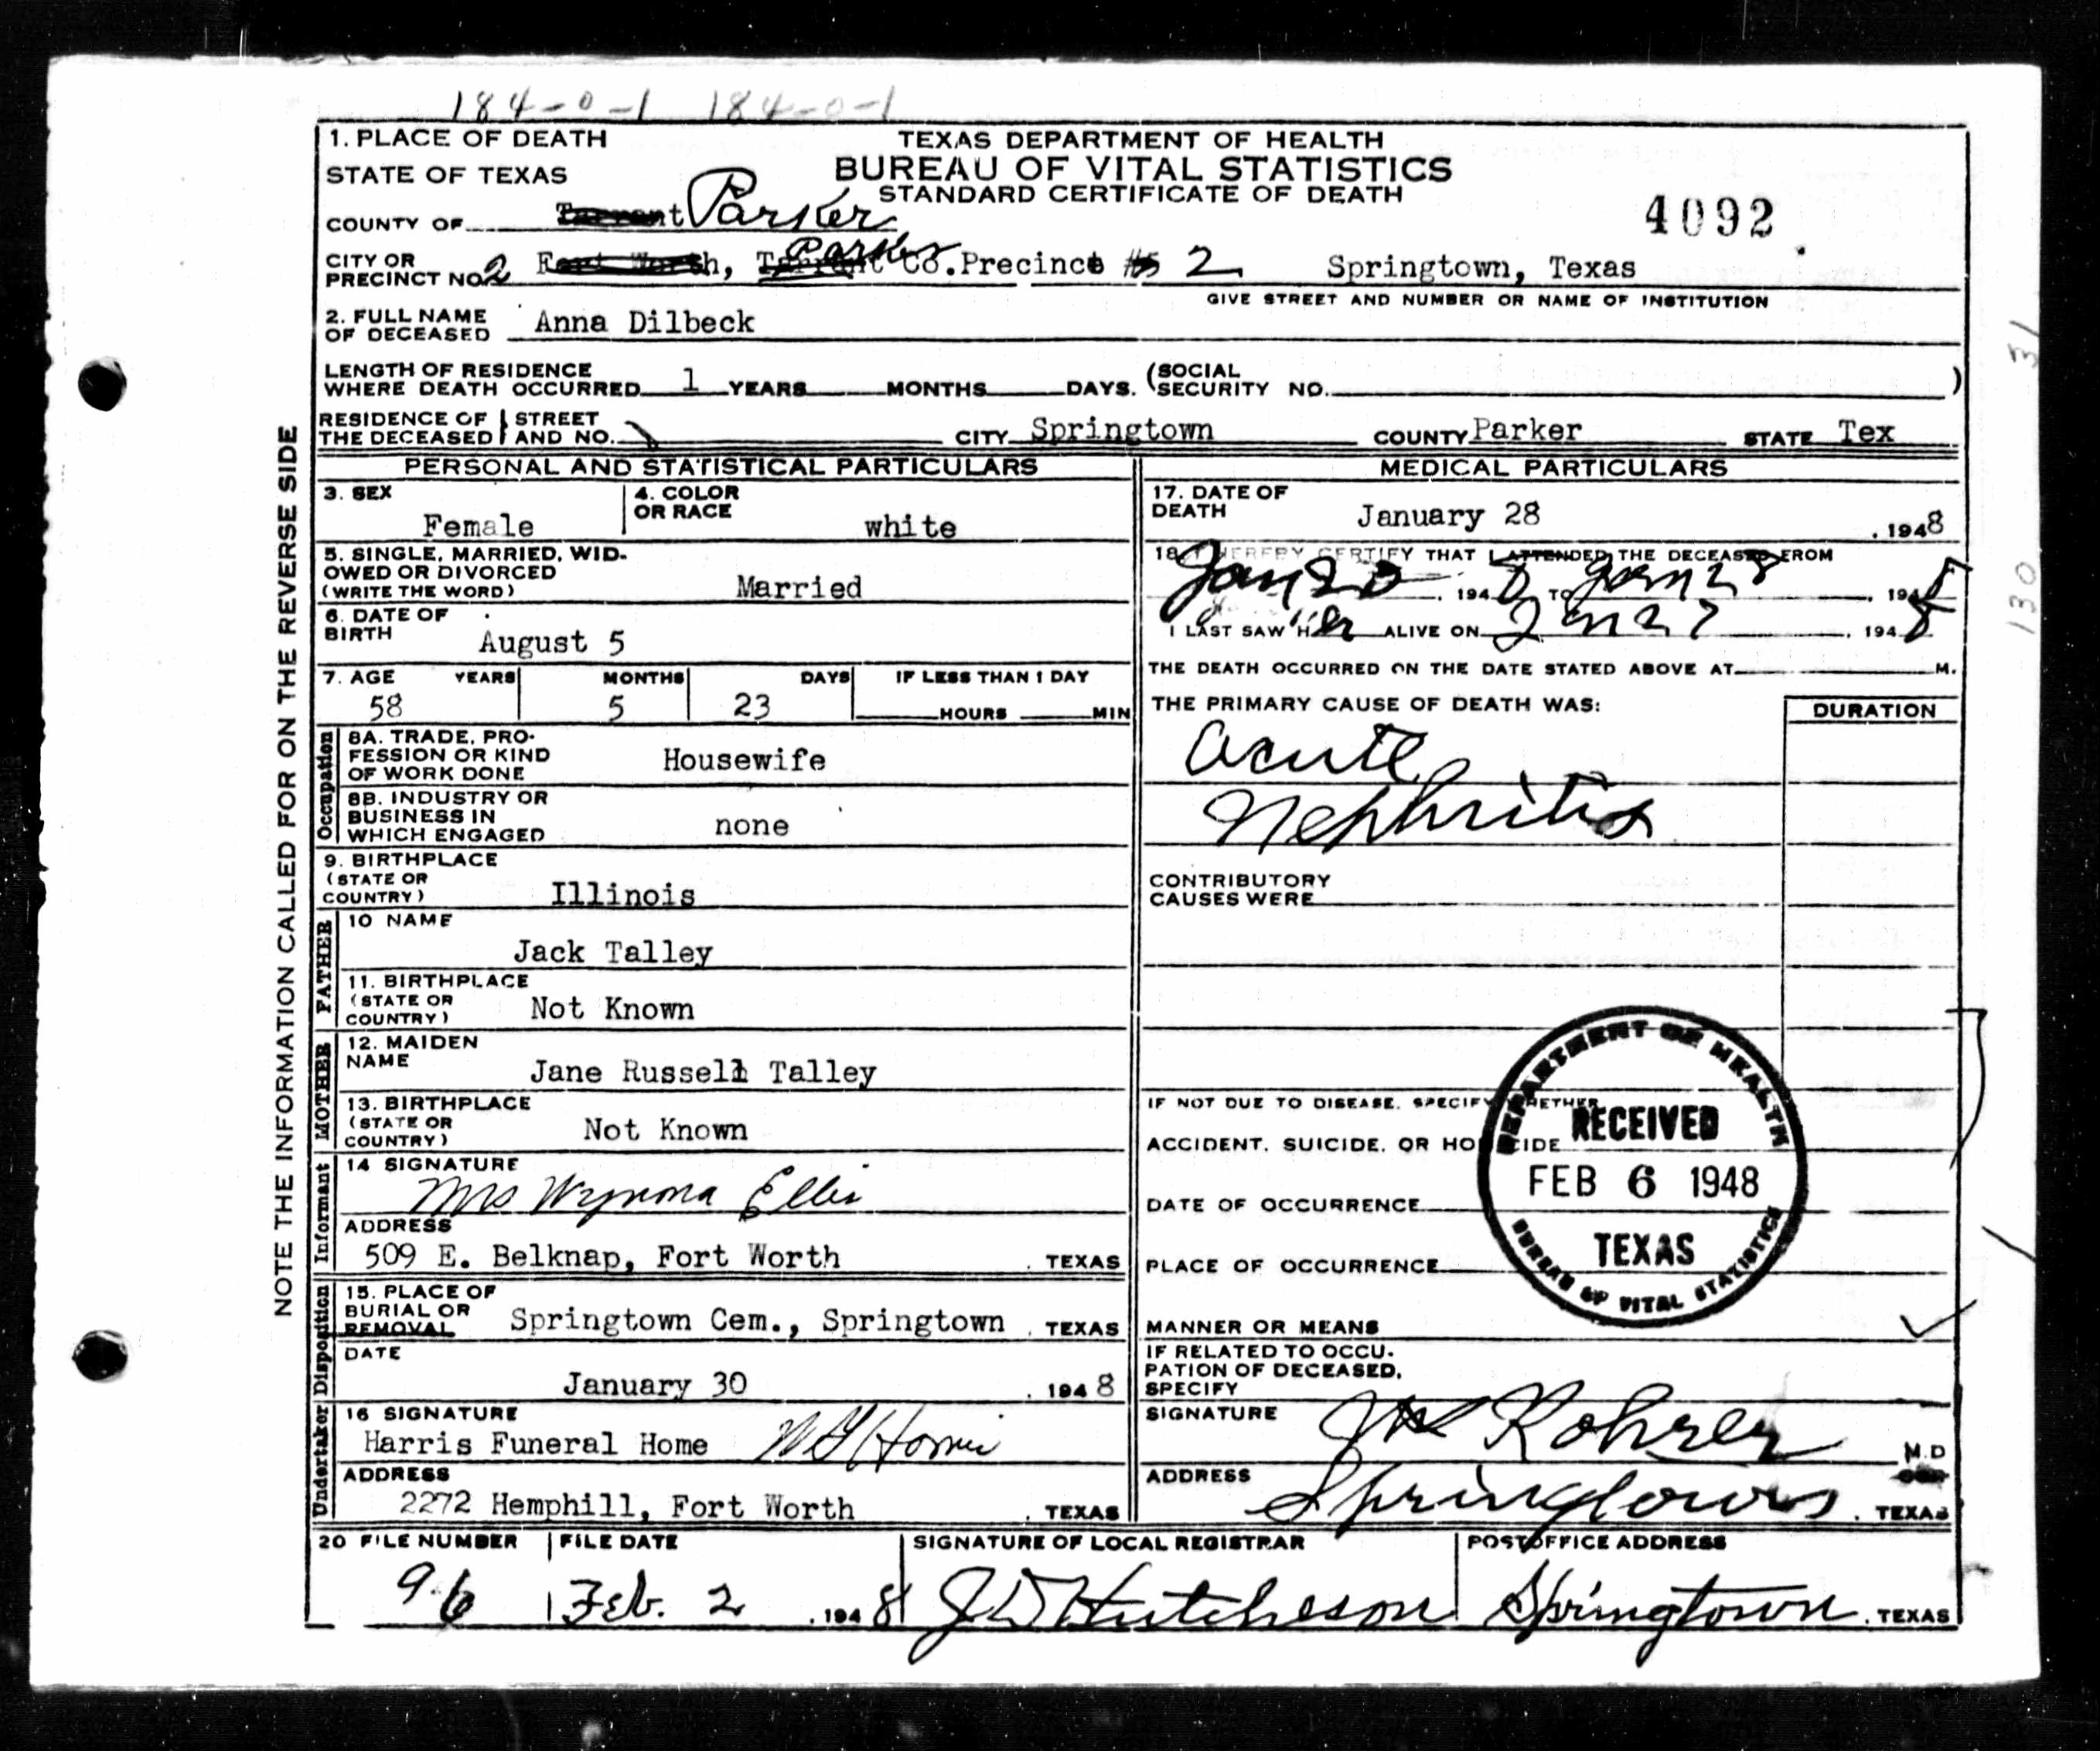 184-0-1 184-0-1
1. PLACE OF DEATH
STATE OF TEXAS
TEXAS DEPARTMENT OF HEALTH
BUREAU OF VITAL STATISTICS
STANDARD CERTIFICATE OF DEATH
4092
COUNTY OF Tarrant Parker
CITY OR PRECINCT NO. 2 Fort Worth, Tarrant Parker Co. Precinct #5 2 Springtown, Texas
GIVE STREET AND NUMBER OR NAME OF INSTITUTION
2. FULL NAME OF DECEASED Anna Dilbeck
LENGTH OF RESIDENCE WHERE DEATH OCCURRED 1 YEARS MONTHS DAYS. (SOCIAL SECURITY NO. )
RESIDENCE OF THE DECEASED STREET AND NO. CITY Springtown COUNTY Parker STATE Tex
PERSONAL AND STATISTICAL PARTICULARS
3. SEX Female 4. COLOR OR RACE white
5. SINGLE, MARRIED, WIDOWED OR DIVORCED (WRITE THE WORD) Married
6. DATE OF BIRTH August 5
7. AGE YEARS MONTHS DAYS IF LESS THAN 1 DAY
58 5 23 HOURS MIN
Occupation
8A. TRADE, PROFESSION OR KIND OF WORK DONE Housewife
8B. INDUSTRY OR BUSINESS IN WHICH ENGAGED none
9. BIRTHPLACE (STATE OR COUNTRY) Illinois
FATHER
10 NAME Jack Talley
11. BIRTHPLACE (STATE OR COUNTRY) Not Known
MOTHER
12. MAIDEN NAME Jane Russell Talley
13. BIRTHPLACE (STATE OR COUNTRY) Not Known
Informant
14 SIGNATURE Mrs Wynona Ellis
ADDRESS 509 E. Belknap, Fort Worth, TEXAS
Disposition
15. PLACE OF BURIAL OR REMOVAL Springtown Cem., Springtown, TEXAS
DATE January 30, 1948
Undertaker
16 SIGNATURE Harris Funeral Home
ADDRESS 2272 Hemphill, Fort Worth, TEXAS
MEDICAL PARTICULARS
17. DATE OF DEATH January 28, 1948
18. I HEREBY CERTIFY THAT I ATTENDED THE DECEASED FROM
Jan 20, 1948 TO Jan 28, 1948
I LAST SAW Her ALIVE ON Jan 27, 1948
THE DEATH OCCURRED ON THE DATE STATED ABOVE AT M.
THE PRIMARY CAUSE OF DEATH WAS: DURATION
Acute
Nephritis
CONTRIBUTORY CAUSES WERE
IF NOT DUE TO DISEASE, SPECIFY WHETHER
ACCIDENT, SUICIDE, OR HOMICIDE
DATE OF OCCURRENCE
PLACE OF OCCURRENCE
MANNER OR MEANS
IF RELATED TO OCCUPATION OF DECEASED, SPECIFY
DEPARTMENT OF HEALTH
RECEIVED
FEB 6 1948
TEXAS
BUREAU OF VITAL STATISTICS
SIGNATURE Rohrer M.D
ADDRESS Springtown, TEXAS
20 FILE NUMBER 96
FILE DATE Feb. 2, 1948
SIGNATURE OF LOCAL REGISTRAR J D Hutcheson
POSTOFFICE ADDRESS Springtown, TEXAS
NOTE THE INFORMATION CALLED FOR ON THE REVERSE SIDE
31
130